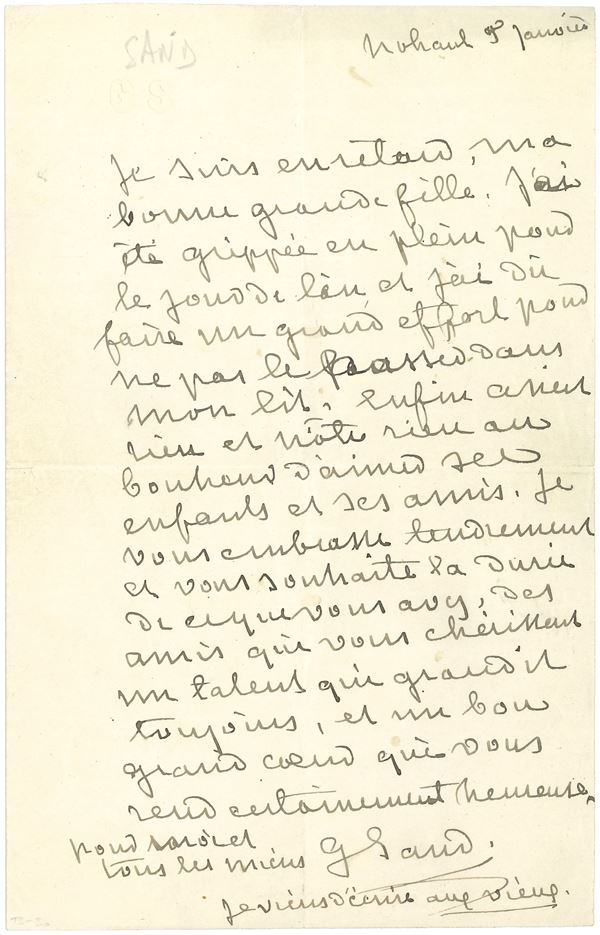 SAND
Nohant 5 Janvier
Je suis en retard, ma
bonne grande fille. J'ai
été grippée en plein pour
le jour de l'an et j'ai dû
faire un grand effort pour
ne pas le passer dans
mon lit. Enfin ce n'est
rien et n'ôte rien au
bonheur d'aimer ses
enfants et ses amis. Je
vous embrasse tendrement
et vous souhaite la durée
de ce que vous avez, des
amis qui vous chérissent
un talent qui grandit
toujours, et un bon
grand cœur qui vous
rend certainement heureuse.
pour moi et
tous les miens G Sand.
Je viens d'écrire aux vieux.